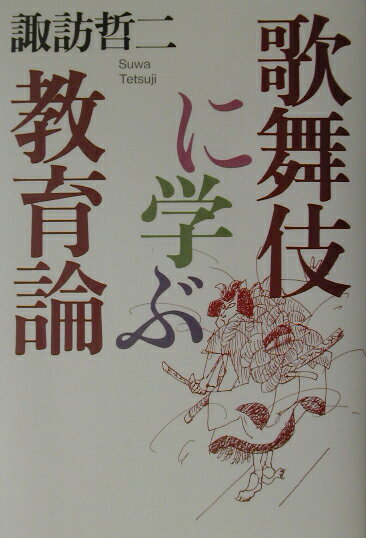 歌舞伎
に学ぶ
教育論
諏訪哲二
Suwa
Tetsuji